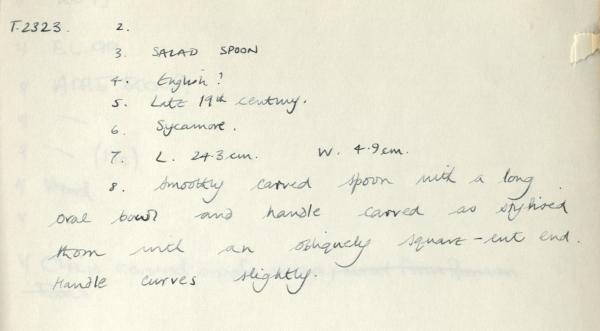 T.2323. 2.
3. SALAD SPOON
4. English?
5. Late 19th century.
6. Sycamore.
7. L. 24.3 cm. W. 4.9 cm.
8. Smoothly carved spoon with a long
oval bowl and handle carved as stylised
thorn with an obliquely square-cut end.
Handle curves slightly.